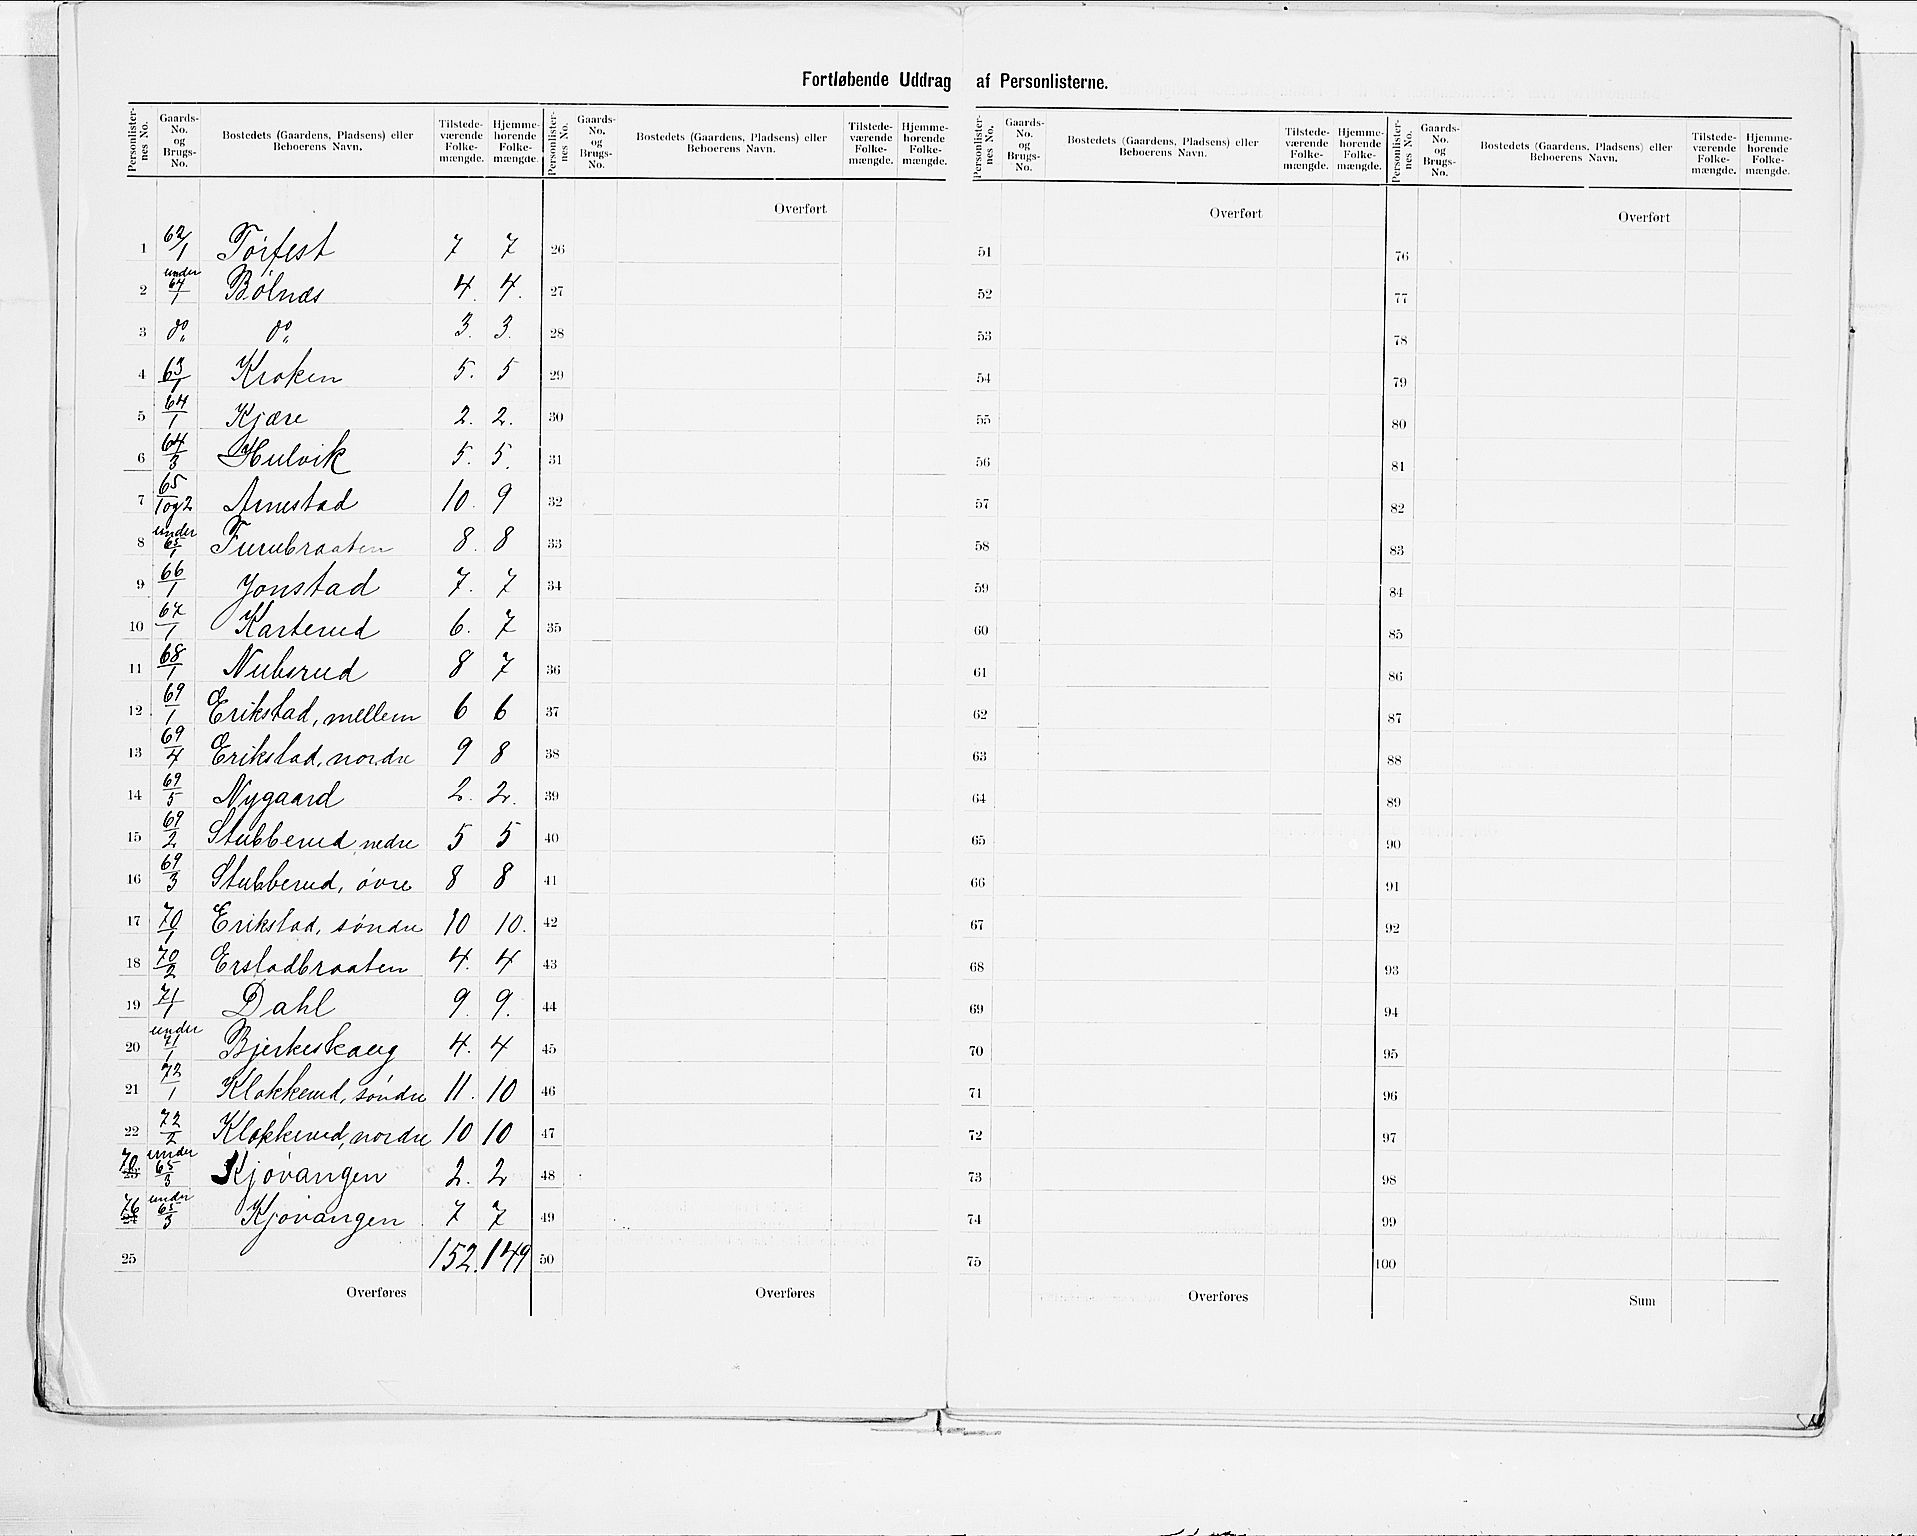 Fortløbende Uddrag af Personlisterne.
Personlister-nes No. | Gaards-No. og Brugs-No. | Bostedets (Gaardens, Pladsens) eller Beboerens Navn. | Tilstede-værende Folke-mængde. | Hjemme-hørende Folke-mængde.
Personlister-nes No. | Gaards-No. og Brugs-No. | Bostedets (Gaardens, Pladsens) eller Beboerens Navn. | Tilstede-værende Folke-mængde. | Hjemme-hørende Folke-mængde.
Personlister-nes No. | Gaards-No. og Brugs-No. | Bostedets (Gaardens, Pladsens) eller Beboerens Navn. | Tilstede-værende Folke-mængde. | Hjemme-hørende Folke-mængde.
Personlister-nes No. | Gaards-No. og Brugs-No. | Bostedets (Gaardens, Pladsens) eller Beboerens Navn. | Tilstede-værende Folke-mængde. | Hjemme-hørende Folke-mængde.
Overført Overført Overført
1 62/1 Tofest 7 7 26 51 76
2 under 67/1 Bølnæs 4. 4. 27 52 77
3 do do 3. 3. 28 53 78
4 63/1 Kroken 5. 5 29 54 79
5 64/1 Kjære 2. 2. 30 55 80
6 64/3 Hulvik 5. 5. 31 56 81
7 65/1 og 2 Arnestad 10. 9 32 57 82
8 under 65/1 Furubraaten 8. 8 33 58 83
9 66/1 Jonstad 7. 7 34 59 84
10 67/1 Karterud 6. 7 35 60 85
11 68/1 Nuberud 8 7 36 61 86
12 69/1 Erikstad, mellem 6 6 37 62 87
13 69/4 Erikstad, nordre 9 8 38 63 88
14 69/5 Nygaard 2. 2. 39 64 89
15 69/2 Stubberud, nedre 5 5 40 65 90
16 69/3 Stubberud, øvre 8 8 41 66 91
17 70/1 Erikstad, søndre 10 10. 42 67 92
18 70/2 Erstadbraaten 4. 4 43 68 93
19 71/1 Dahl 9. 9. 44 69 94
20 under 71/1 Bjerkeskaug 4. 4 45 70 95
21 72/1 Klokkerud, søndre 11. 10 46 71 96
22 72/2 Klokkerud, nordre 10 10 47 72 97
23 under 65/3 Kjøvangen 2. 2 48 73 98
76 24 under 65/3 Kjøvangen 7 7 49 74 99
25 152. 149 50 75 100
Overføres Overføres Overføres Sum